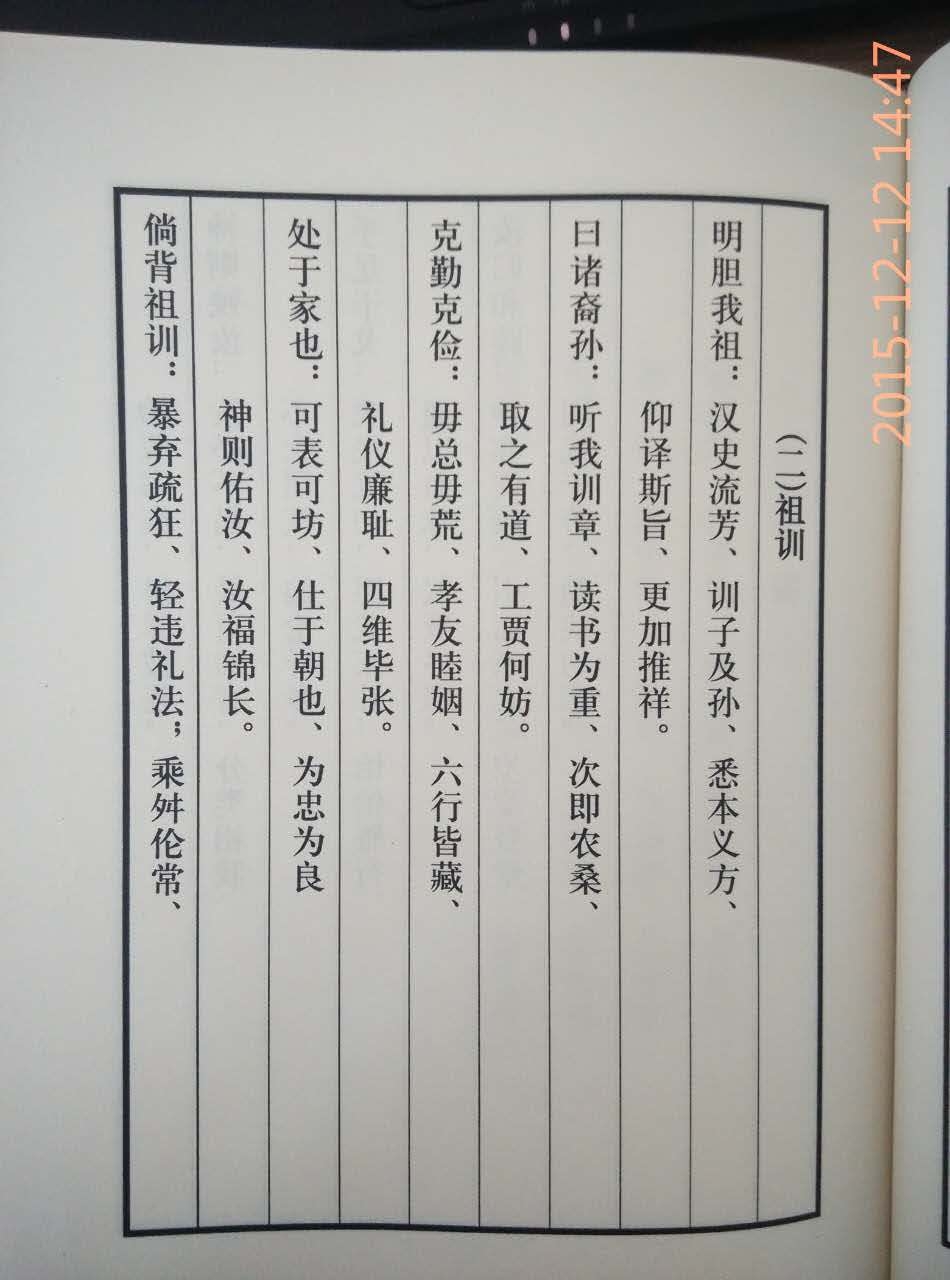 (二)祖训
明胆我祖：汉史流芳、训子及孙、悉本义方、
仰译斯旨、更加推祥。
曰诸裔孙：听我训章、读书为重、次即农桑、
取之有道、工贾何妨。
克勤克俭：毋总毋荒、孝友睦姻、六行皆藏、
礼仪廉耻、四维毕张。
处于家也：可表可坊、仕于朝也、为忠为良
神则佑汝、汝福锦长。
倘背祖训：暴弃疏狂、轻违礼法；乘舛伦常、
2015-12-12 14:47